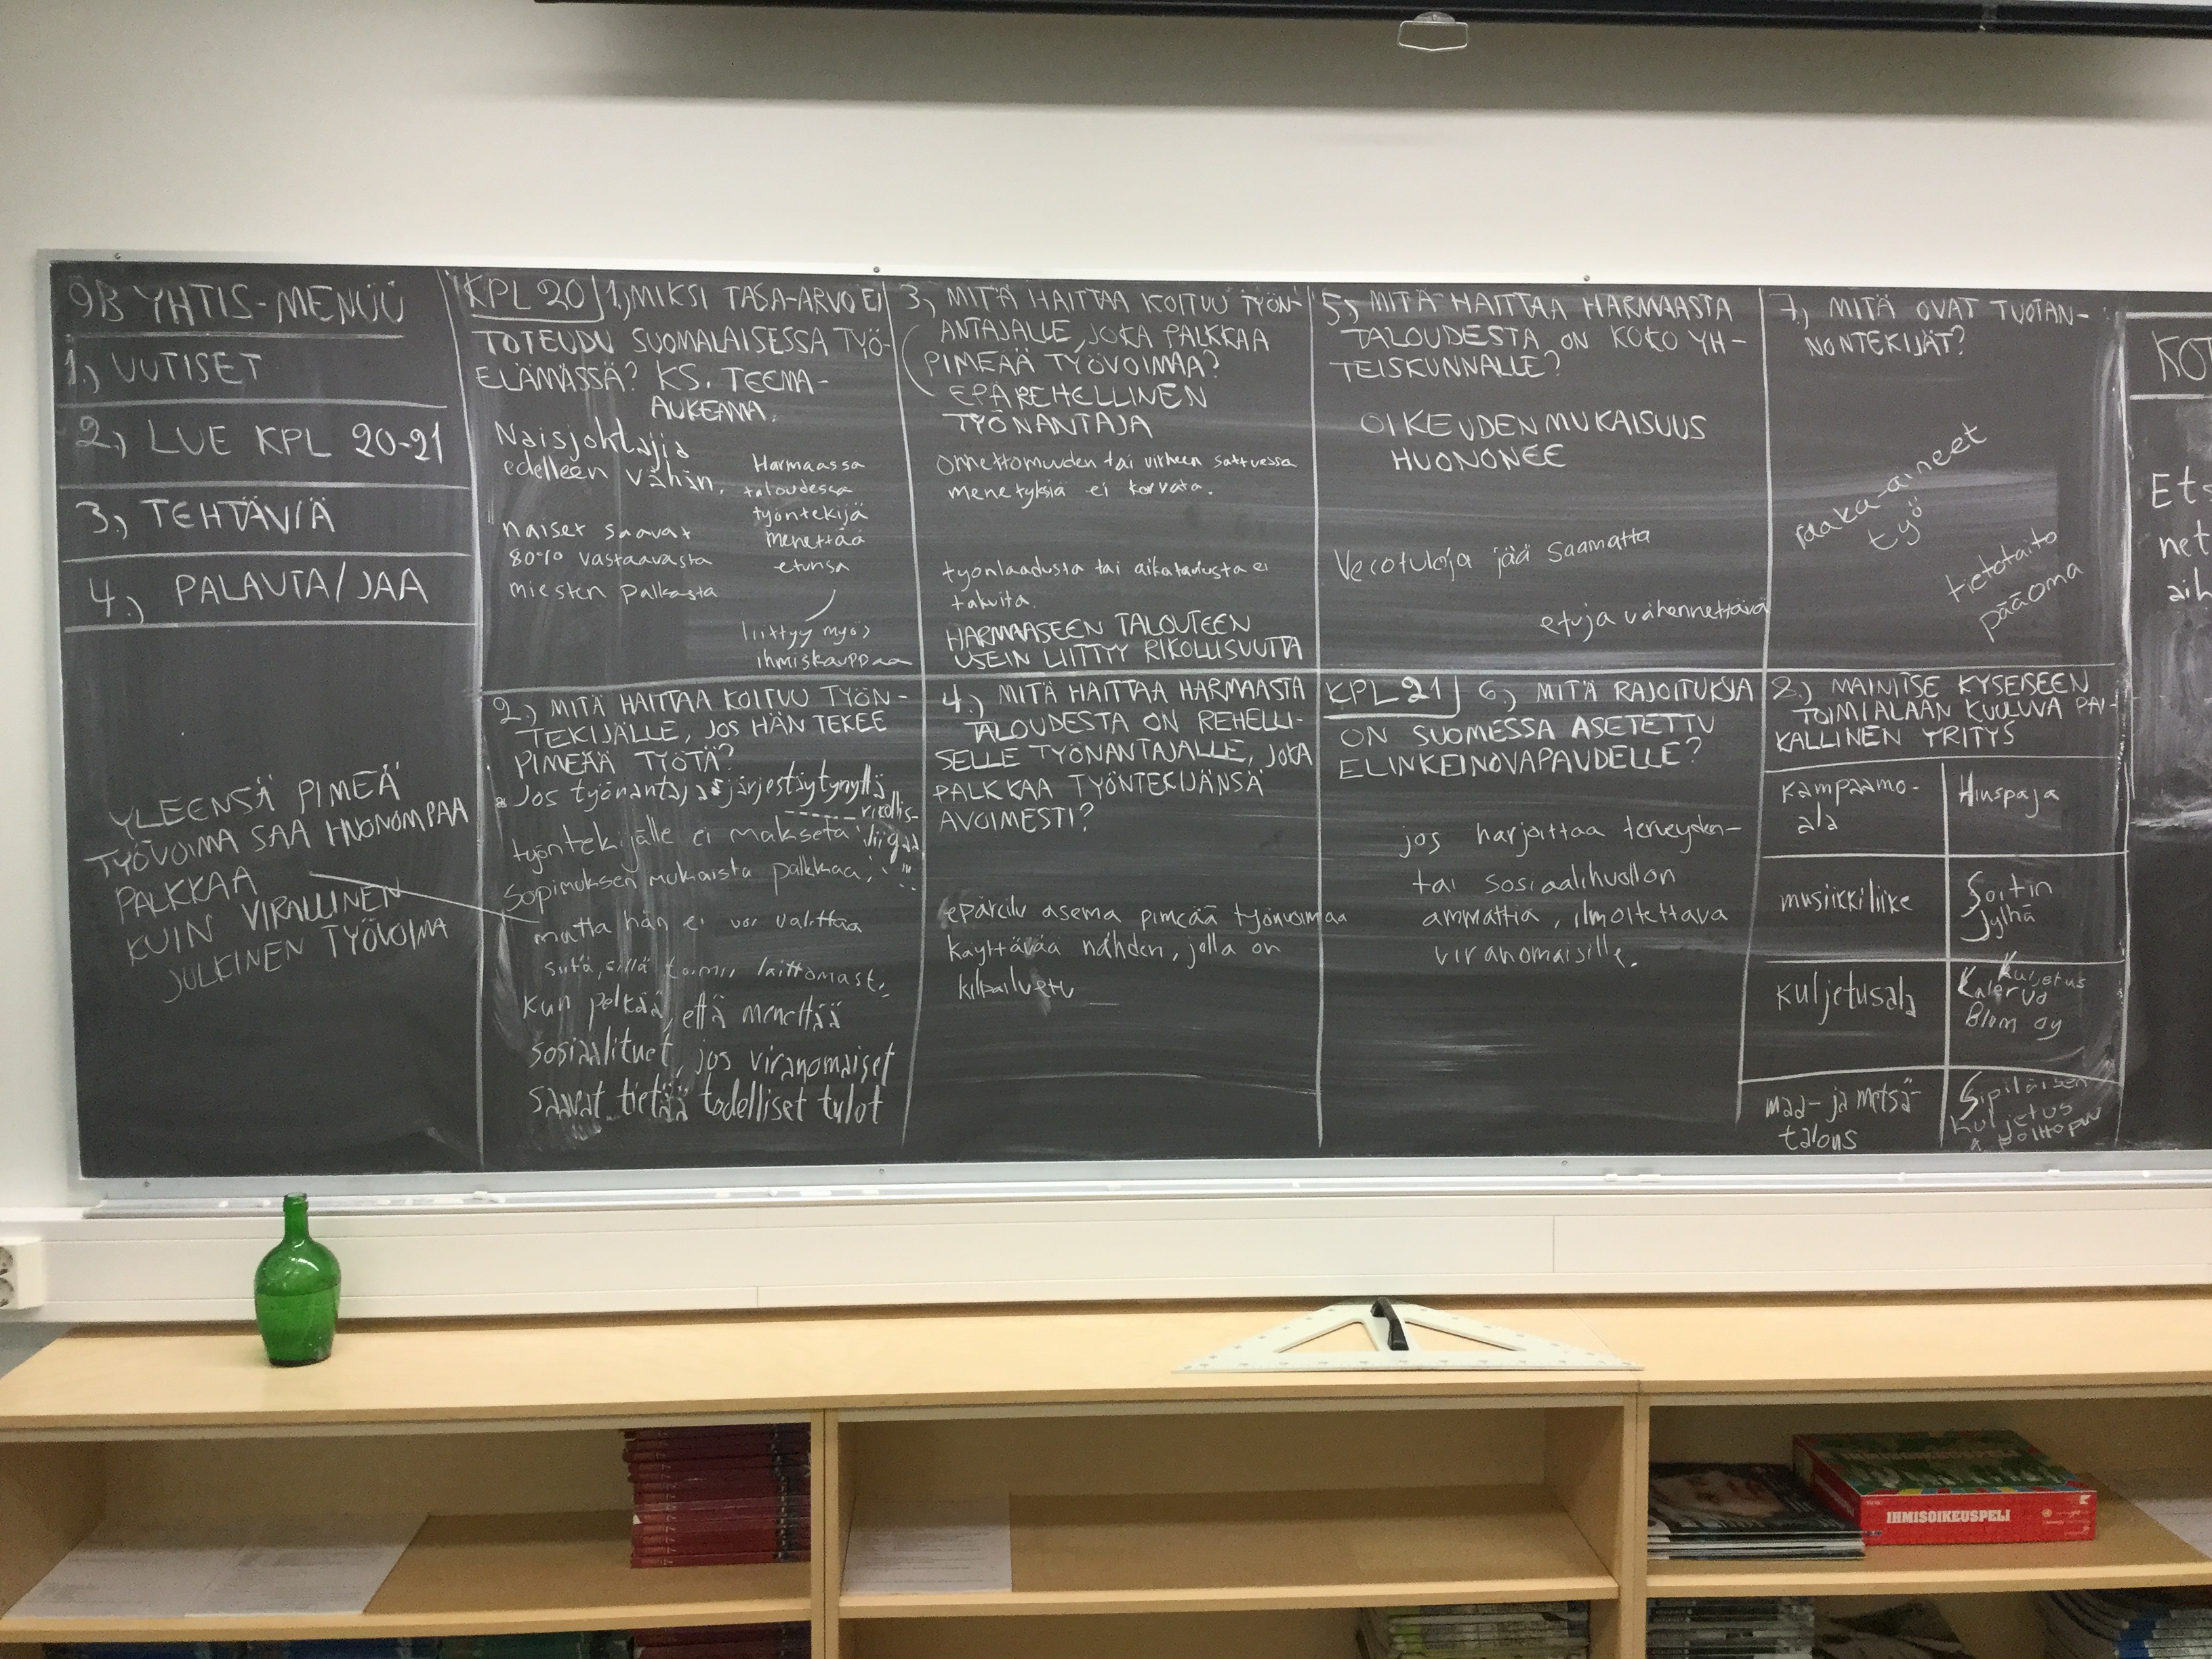 9B YHTIS-MENÜÜ
1.) UUTISET
2.) LUE KPL 20-21
3.) TEHTÄVIÄ
4.) PALAUTA/JAA
YLEENSÄ PIMEÄ
TYÖVOIMA SAA HUONOMPAA
PALKKAA
KUIN VIRALLINEN
JULKINEN TYÖVOIMA
KPL 20 1.) MIKSI TASA-ARVO EI
TOTEUDU SUOMALAISESSA TYÖ-
ELÄMÄSSÄ? KS. TEEMA-
AUKEAMA.
Naisjohtajia
edelleen vähän.
naiset saavat
80% vastaavasta
miesten palkasta
Harmaassa
taloudessa
työntekijä
menettää
etunsa
liittyy myös
ihmiskauppaa
2.) MITÄ HAITTAA KOITUU TYÖN-
TEKIJÄLLE, JOS HÄN TEKEE
PIMEÄÄ TYÖTÄ?
Jos työnantaja järjestäytynyttä
rikollis-
työntekijälle ei makseta liigaa
sopimuksen mukaista palkkaa,
mutta hän ei voi valittaa
siitä, sillä toimii laittomasti,
kun pelkää, että menettää
sosiaalituet, jos viranomaiset
saavat tietää todelliset tulot
3.) MITÄ HAITTAA KOITUU TYÖN-
ANTAJALLE, JOKA PALKKAA
PIMEÄÄ TYÖVOIMAA?
EPÄREHELLINEN
TYÖNANTAJA
Onnettomuuden tai virheen sattuessa
menetyksiä ei korvata.
työnlaadusta tai aikataulusta ei
takuita.
HARMAASEEN TALOUTEEN
USEIN LIITTYY RIKOLLISUUTTA
4.) MITÄ HAITTAA HARMAASTA
TALOUDESTA ON REHELLI-
SELLE TYÖNANTAJALLE, JOKA
PALKKAA TYÖNTEKIJÄNSÄ
AVOIMESTI?
epäreilu asema pimeää työvoimaa
käyttävää nähden, jolla on
kilpailuetu
5.) MITÄ HAITTAA HARMAASTA
TALOUDESTA ON KOKO YH-
TEISKUNNALLE?
OIKEUDENMUKAISUUS
HUONONEE
Verotuloja jää saamatta
etuja vähennettävä
KPL 21 6.) MITÄ RAJOITUKSIA
ON SUOMESSA ASETETTU
ELINKEINOVAPAUDELLE?
jos harjoittaa terveyden-
tai sosiaalihuollon
ammattia, ilmoitettava
viranomaisille.
7.) MITÄ OVAT TUOTAN-
NONTEKIJÄT?
raaka-aineet
työ
tietotaito
pääoma
8.) MAINITSE KYSEISEEN
TOIMIALAAN KUULUVA PAI-
KALLINEN YRITYS
kampaamo-
ala
Hiuspaja
musiikkiliike
Soitin
Jylhä
kuljetusala
Kuljetus
Kalervo
Blom oy
maa- ja metsä-
talous
Sipiläisen
kuljetus
polttopuu
KOT
Et
net
aih
IHMISOIKEUSPELI